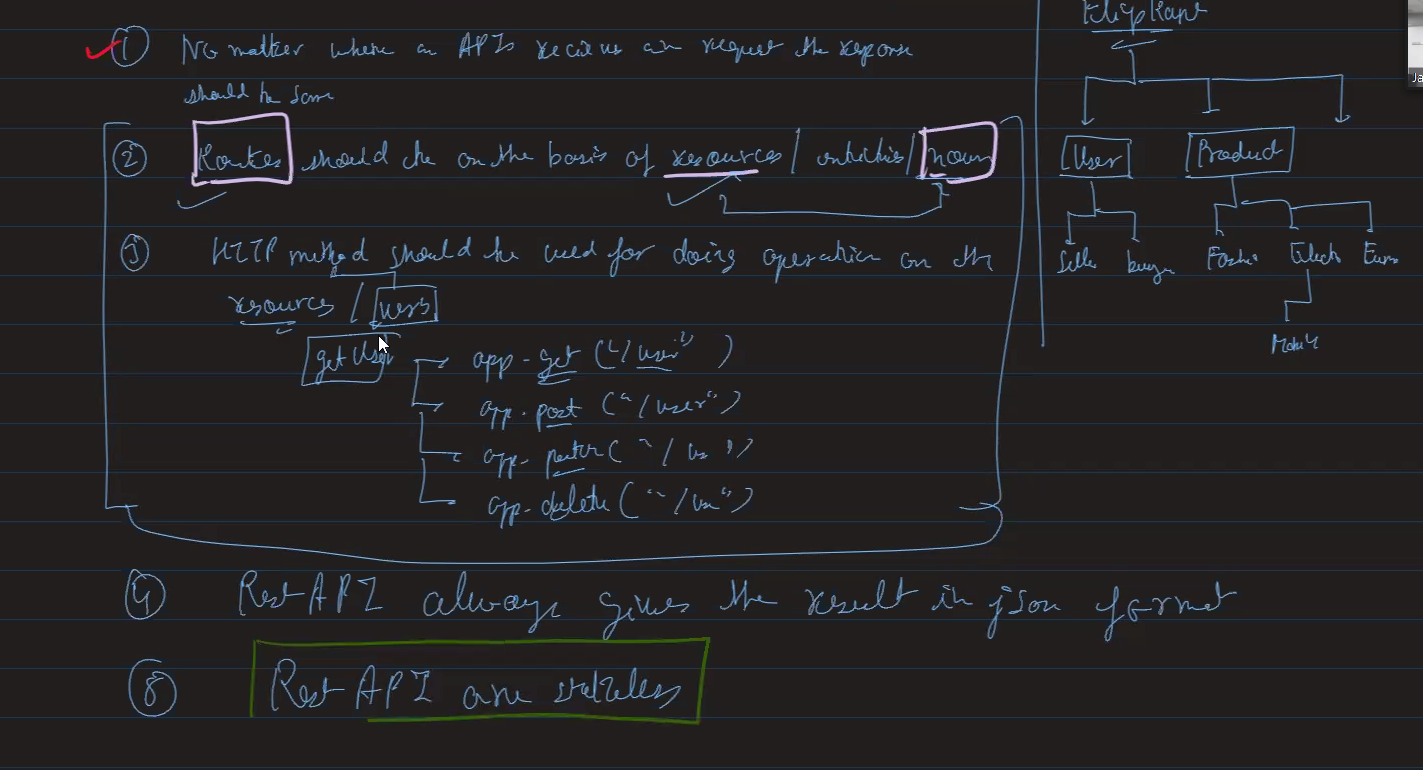 ① No matter where an APIs recieves an request the response
should be same
② Routes should be on the basis of resources / entities / noun
③ HTTP method should be used for doing operation on the
resources / verb
getUser
app.get ("/user")
app.post ("/user")
app.patch ("/us")
app.delete ("/us")
④ Rest API always gives the result in json format
⑧ Rest API are stateless
Flipkart
User
Product
Seller
buyer
Fashion
Electro
Ja